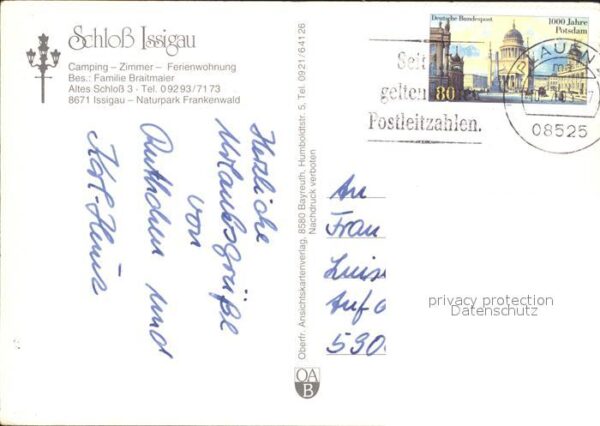 Schloß Issigau
Camping – Zimmer – Ferienwohnung
Bes.: Familie Braitmaier
Altes Schloß 3 · Tel. 0 92 93 / 71 73
8671 Issigau – Naturpark Frankenwald
Herzliche
Urlaubsgrüße
von
Ruthchen und
Karl-Heinz
Oberfr. Ansichtskartenverlag, 8580 Bayreuth, Humboldtstr. 5, Tel. 0921/64126
Nachdruck verboten
OA
B
Deutsche Bundespost
1000 Jahre
Potsdam
80
Seit
gelten
Postleitzahlen.
PLAUEN
08525
An
Frau
Luise
Auf d
590
privacy protection
Datenschutz